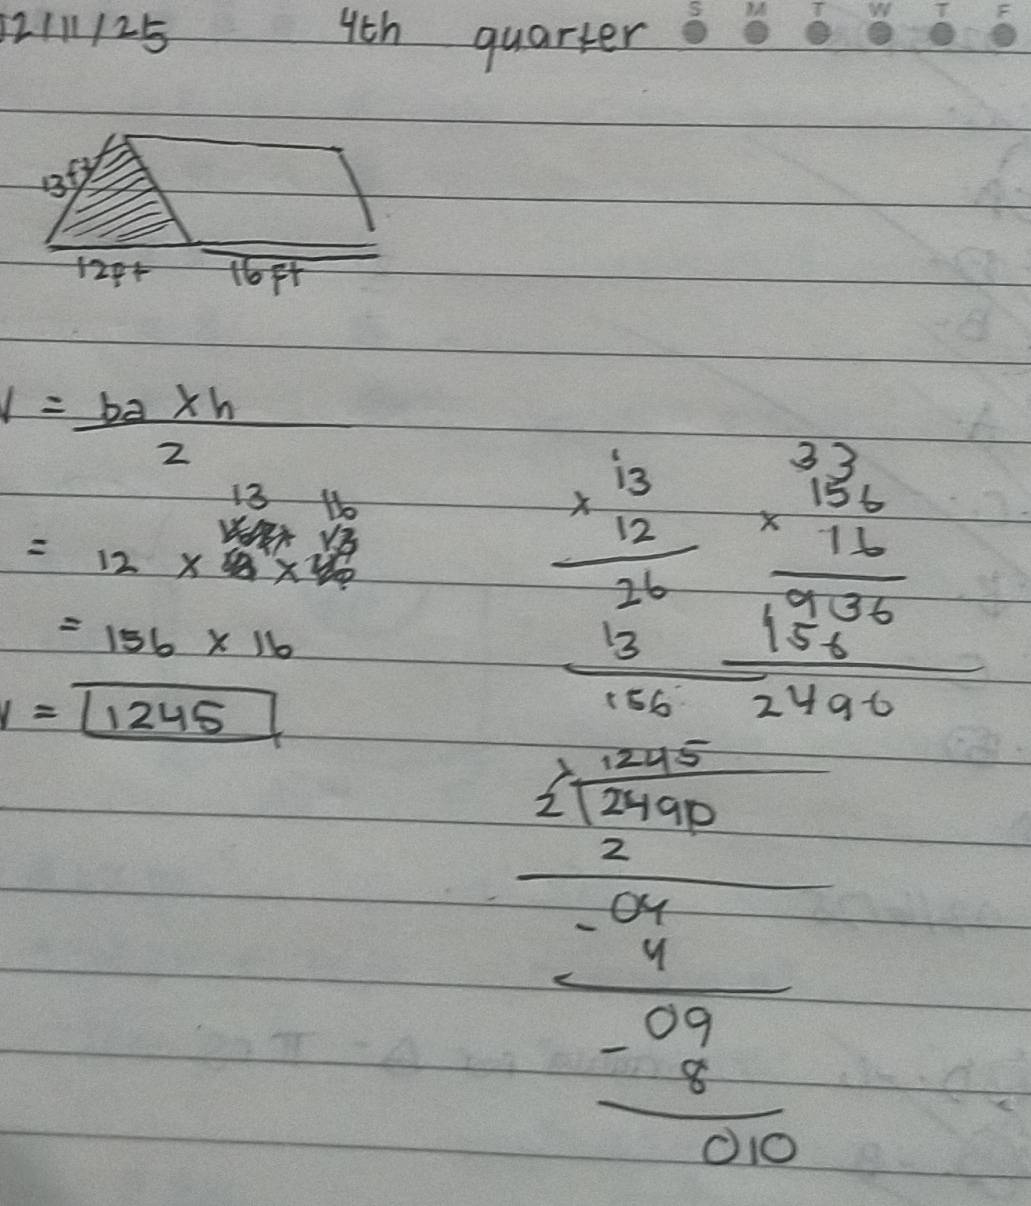 02/11/25 4th quarter S M T W T F
13ft
12ft 16ft
V = ba x h
2
13 16
= 12 x x
= 156 x 16
V = 1245
1
13
x 12
26
13
156
33
156
x 16
936
1
156
2496
1245
2 2490
2
04
- 4
09
- 8
010